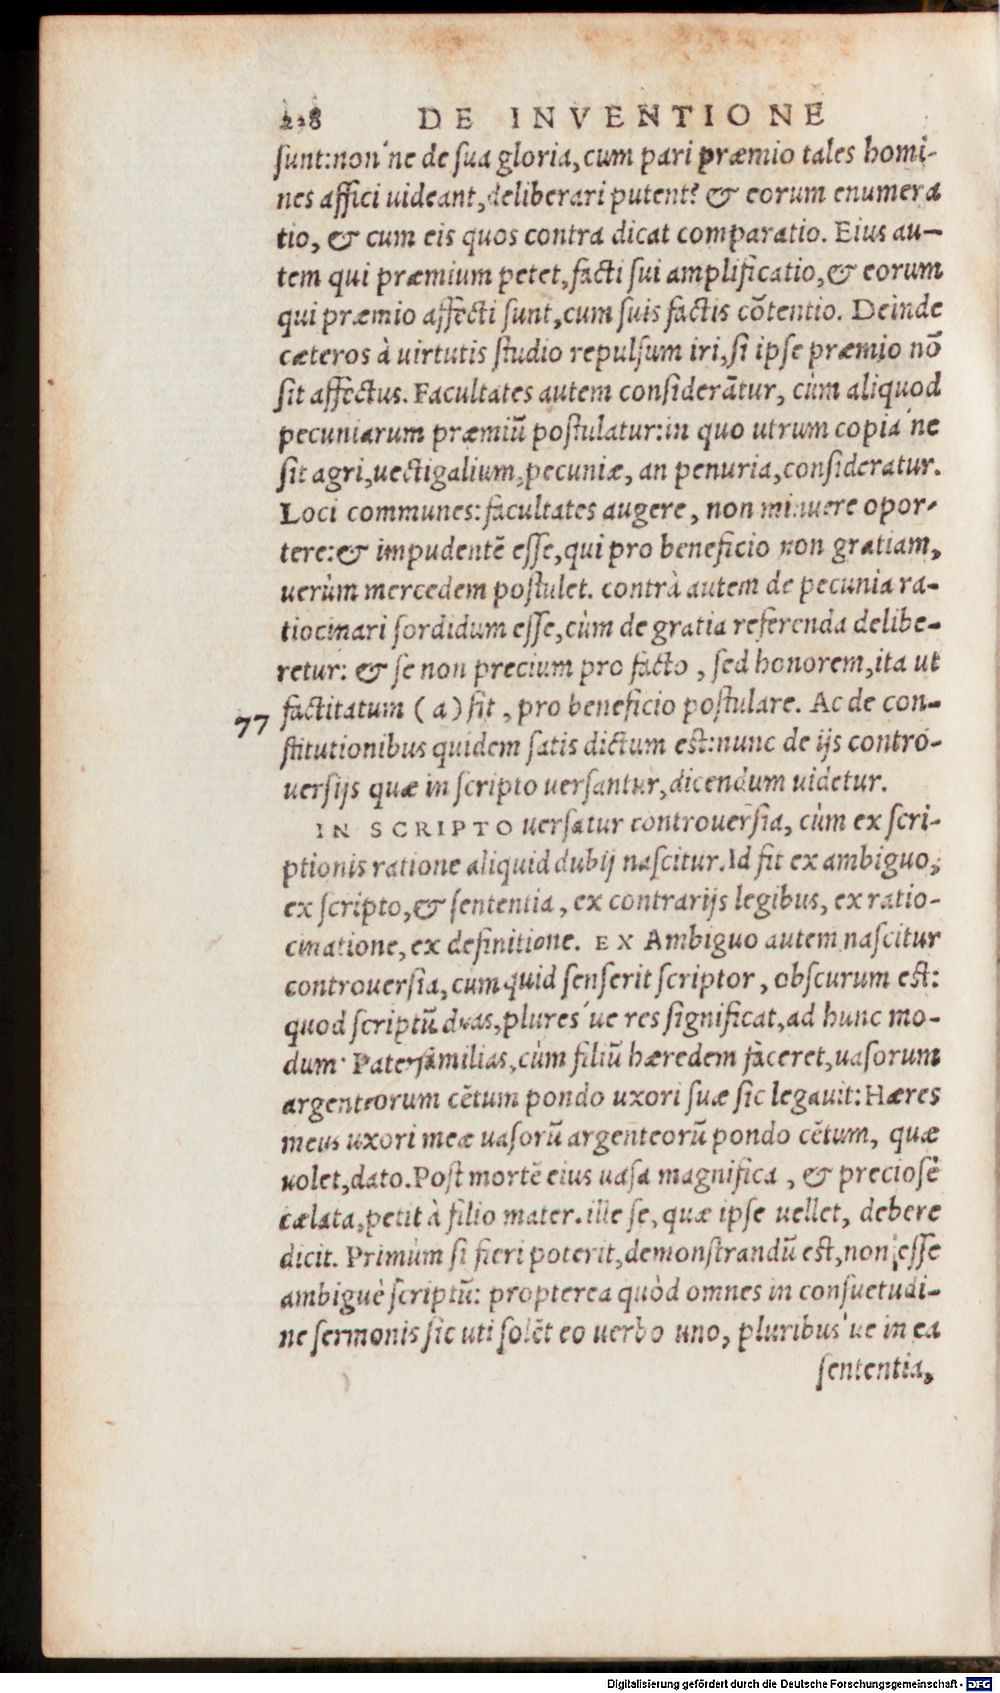 228 DE INVENTIONE
sunt:non'ne de sua gloria,cum pari præmio tales homi-
nes affici uideant,deliberari putent? & eorum enumera
tio, & cum eis quos contra dicat comparatio. Eius au-
tem qui præmium petet,facti sui amplificatio,& eorum
qui præmio affecti sunt,cum suis factis cõtentio. Deinde
cæteros à uirtutis studio repulsum iri,si ipse præmio nõ
sit affectus. Facultates autem considerãtur, cùm aliquod
pecuniarum præmiũ postulatur:in quo utrum copia'ne
sit agri,uectigalium,pecuniæ, an penuria,consideratur.
Loci communes:facultates augere, non minuere opor-
tere:& impudentẽ esse,qui pro beneficio non gratiam,
uerùm mercedem postulet. contrà autem de pecunia ra-
tiocinari sordidum esse,cùm de gratia referenda delibe-
retur: & se non precium pro facto, sed honorem,ita ut
factitatum (a) sit, pro beneficio postulare. Ac de con-
77 stitutionibus quidem satis dictum est:nunc de ijs contro-
uersijs quæ in scripto uersantur,dicendum uidetur.
IN SCRIPTO uersatur controuersia, cùm ex scri-
ptionis ratione aliquid dubij nascitur.Id fit ex ambiguo,
ex scripto,& sententia, ex contrarijs legibus, ex ratio-
cinatione, ex definitione. EX Ambiguo autem nascitur
controuersia, cum quid senserit scriptor, obscurum est:
quod scriptũ duas,plures'ue res significat,ad hunc mo-
dum· Paterfamilias,cùm filiũ hæredem faceret,uasorum
argenteorum cẽtum pondo uxori suæ sic legauit:Hæres
meus uxori meæ uasorũ argenteorũ pondo cẽtum, quæ
uolet,dato.Post mortẽ eius uasa magnifica, & preciosè
cælata,petit à filio mater. ille se, quæ ipse uellet, debere
dicit. Primùm si fieri poterit,demonstrandũ est,non esse
ambiguè scriptũ: propterea quòd omnes in consuetudi-
ne sermonis sic uti solẽt eo uerbo uno, pluribus'ue in ea
sententia,
Digitalisierung gefördert durch die Deutsche Forschungsgemeinschaft - DFG